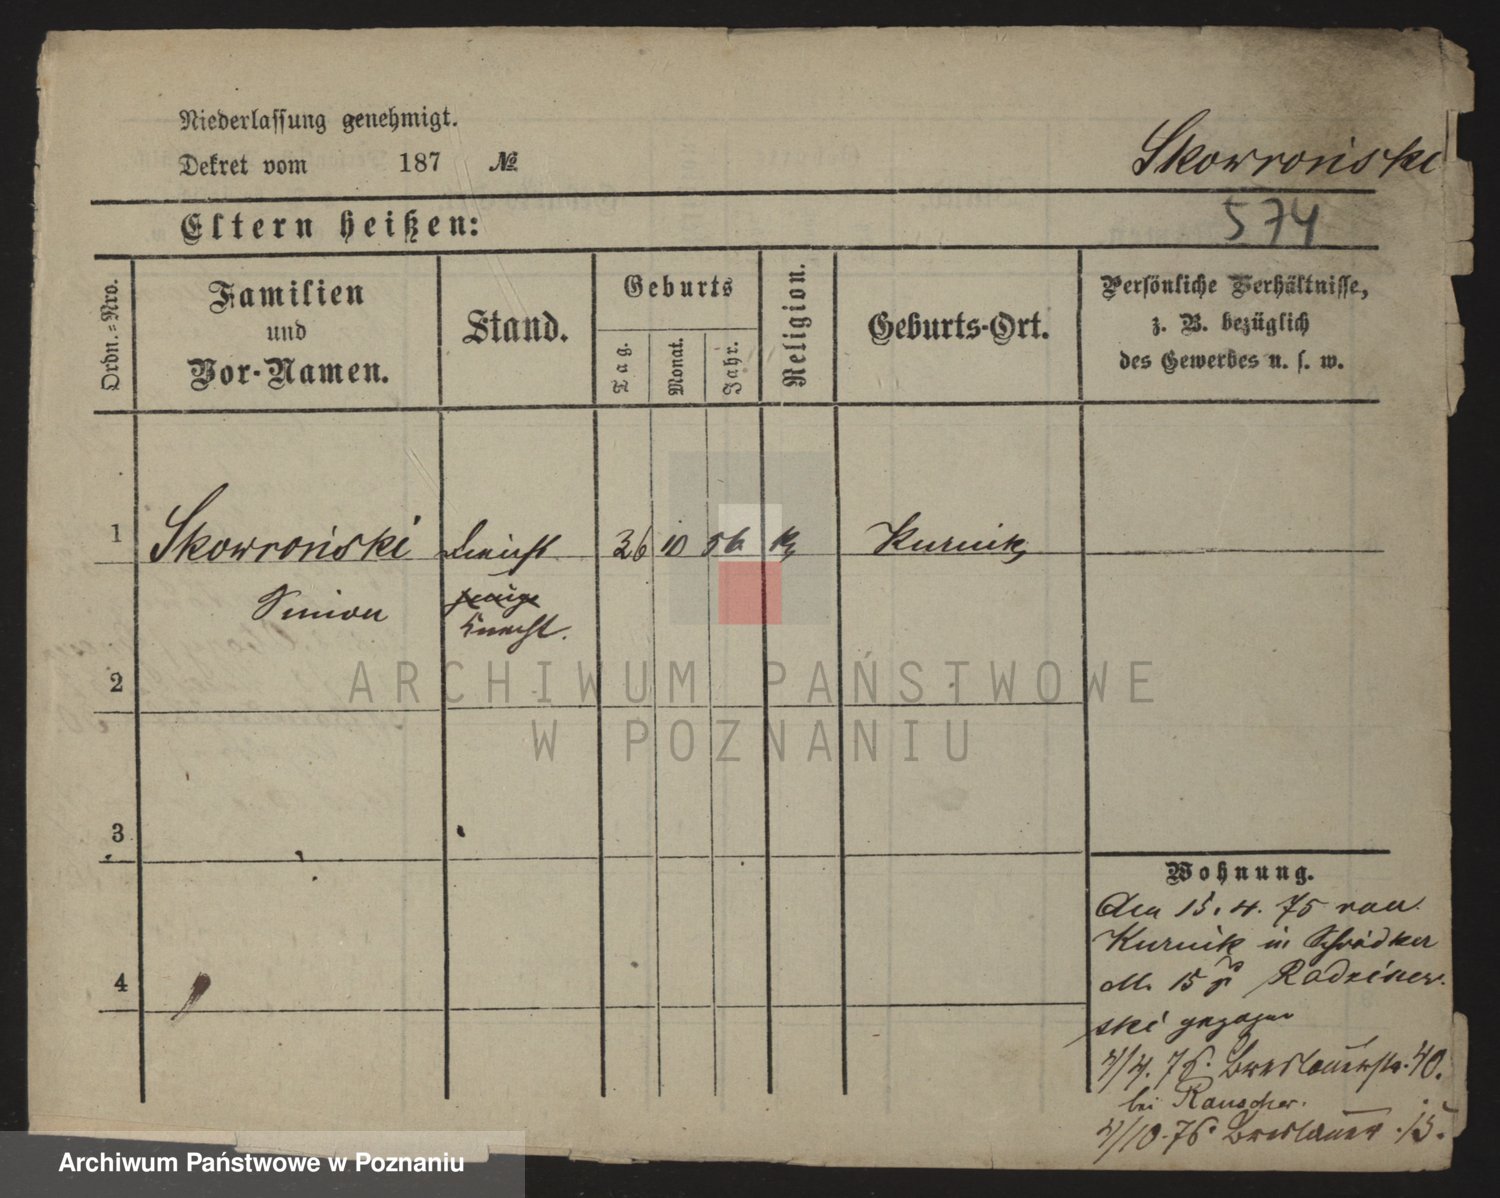 Niederlassung genehmigt.
Dekret vom 187 №
Skowroński
574
Eltern heißen:
Ordn.=Nro.
Familien
und
Vor-Namen.
Stand.
Geburts
Tag.
Monat.
Jahr.
Religion.
Geburts-Ort.
Persönliche Verhältnisse,
z. B. bezüglich
des Gewerbes u. s. w.
1
Skowroński
Knecht
26 10 56 k
Kurnik
Simon
Knecht.
2
ARCHIWUM PAŃSTWOWE
W POZNANIU
3
Wohnung.
Den 15. 4. 75 von
Kurnik in Schrodker
M. 15 Radziejew-
ski gezogen
4
4/4. 76. Breslauerstr. 40.
bei Rauscher.
4/10. 76. Breslauer. 15.
Archiwum Państwowe w Poznaniu